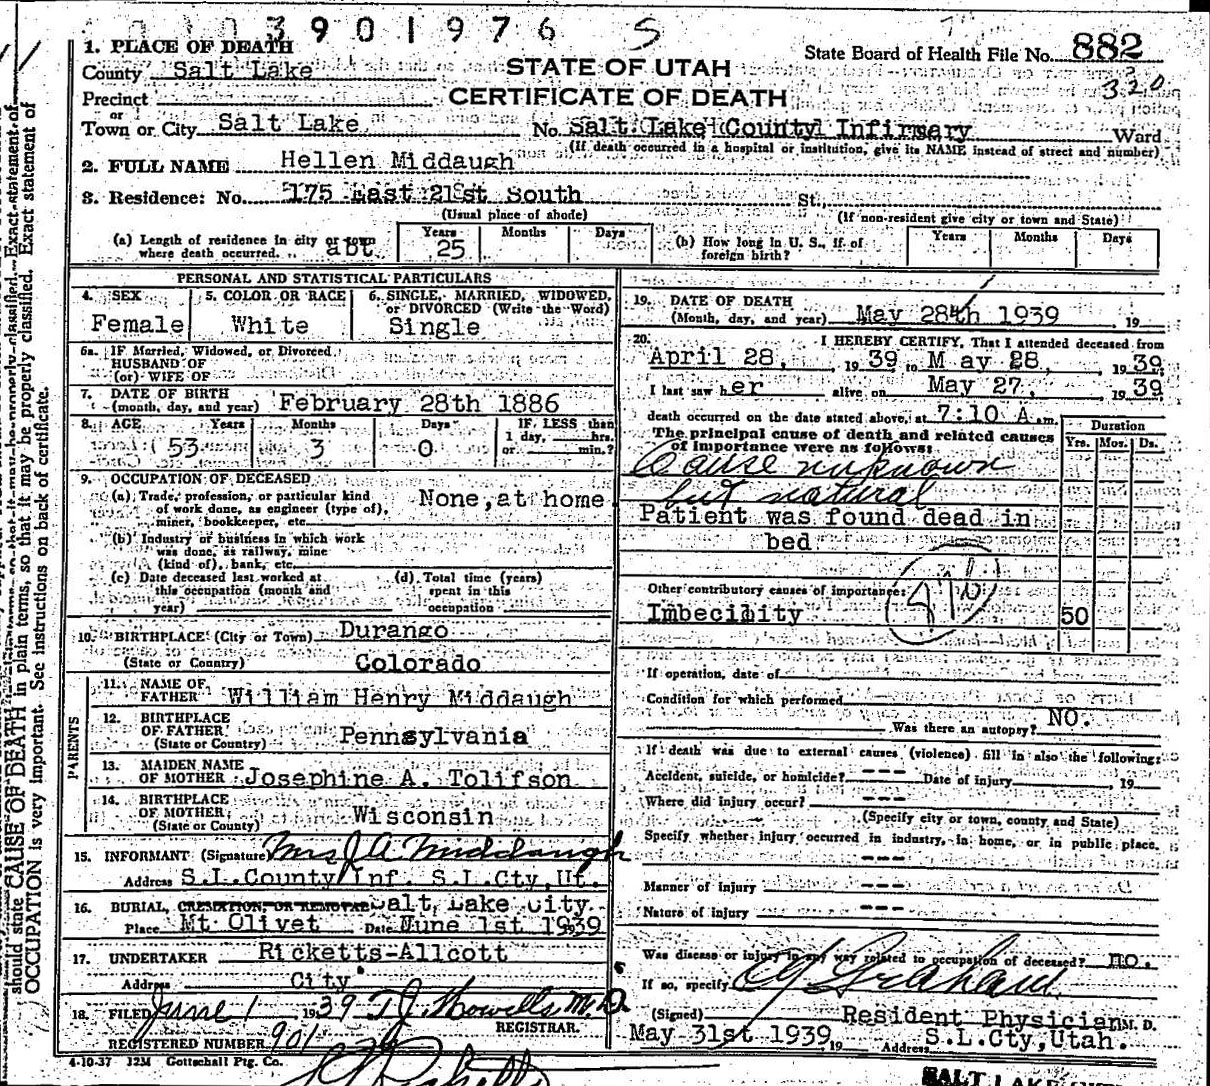 3901976 S
State Board of Health File No. 882
320
STATE OF UTAH
CERTIFICATE OF DEATH
1. PLACE OF DEATH
County Salt Lake
Precinct
or
Town or City Salt Lake No. Salt Lake County Infirmary Ward
(If death occurred in a hospital or institution, give its NAME instead of street and number)
2. FULL NAME Hellen Middaugh
3. Residence: No. 175 East 21st South St.
(Usual place of abode) (If non-resident give city or town and State)
(a) Length of residence in city or town where death occurred. abt. Years 25 Months Days
(b) How long in U. S., if of foreign birth? Years Months Days
PERSONAL AND STATISTICAL PARTICULARS
4. SEX Female
5. COLOR OR RACE White
6. SINGLE, MARRIED, WIDOWED, or DIVORCED (Write the Word) Single
6a. IF Married, Widowed, or Divorced
HUSBAND OF
(or) WIFE OF
7. DATE OF BIRTH
(month, day, and year) February 28th 1886
8. AGE Years 53 Months 3 Days 0 IF LESS than 1 day, hrs. or min.?
9. OCCUPATION OF DECEASED
(a) Trade, profession, or particular kind of work done, as engineer (type of), miner, bookkeeper, etc. None, at home
(b) Industry or business in which work was done, as railway, mine (kind of), bank, etc.
(c) Date deceased last worked at this occupation (month and year)
(d) Total time (years) spent in this occupation
10. BIRTHPLACE (City or Town) Durango
(State or Country) Colorado
PARENTS
11. NAME OF FATHER William Henry Middaugh
12. BIRTHPLACE OF FATHER
(State or Country) Pennsylvania
13. MAIDEN NAME OF MOTHER Josephine A. Tolifson
14. BIRTHPLACE OF MOTHER
(State or Country) Wisconsin
15. INFORMANT (Signature) Mrs J A Middaugh
Address S.L.County Inf. S.L.Cty,Ut.
16. BURIAL, CREMATION, OR REMOVAL Salt Lake City
Place Mt Olivet Date June 1st 1939
17. UNDERTAKER Ricketts-Allcott
Address City
18. FILED June 1 1939 T J Howells M.D.
REGISTRAR.
REGISTERED NUMBER 901
4-10-37 12M Gottschall Ptg. Co.
19. DATE OF DEATH
(Month, day, and year) May 28th 1939 , 19
20. I HEREBY CERTIFY, That I attended deceased from
April 28, 1939 to May 28, , 1939
I last saw her alive on May 27, , 1939
death occurred on the date stated above, at 7:10 A. m.
The principal cause of death and related causes of importance were as follows: Duration
Yrs. Mos. Ds.
Cause unknown
but natural
Patient was found dead in
bed
Other contributory causes of importance:
Imbecility 50
If operation, date of
Condition for which performed
Was there an autopsy? NO.
If death was due to external causes (violence) fill in also the following:
Accident, suicide, or homicide? --- Date of injury , 19
Where did injury occur? ---
(Specify city or town, county and State)
Specify whether injury occurred in industry, in home, or in public place.
---
Manner of injury ---
Nature of injury ---
Was disease or injury in any way related to occupation of deceased? no.
If so, specify
(Signed) Graham
Resident Physician M. D.
May 31st 1939, 19 Address S.L.Cty,Utah.
should state CAUSE OF DEATH in plain terms, so that it may be properly classified. Exact statement of
OCCUPATION is very important. See instructions on back of certificate.